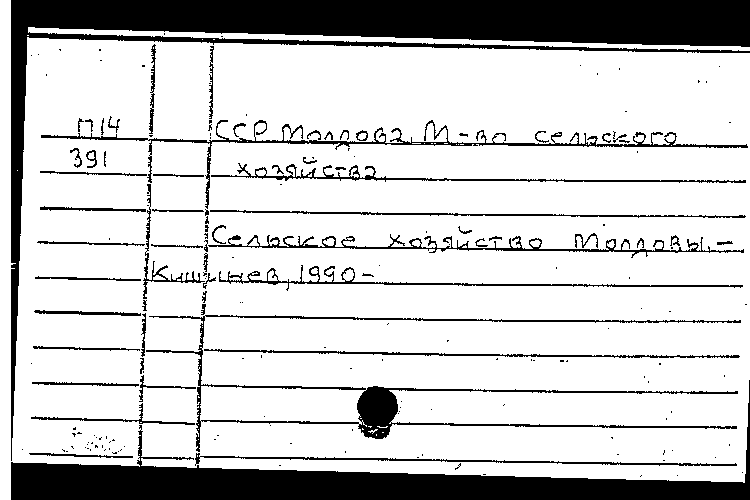 П14 ССР Молдова. М-во сельского
391 хозяйства.
Сельское хозяйство Молдовы.-
Кишинев, 1990-